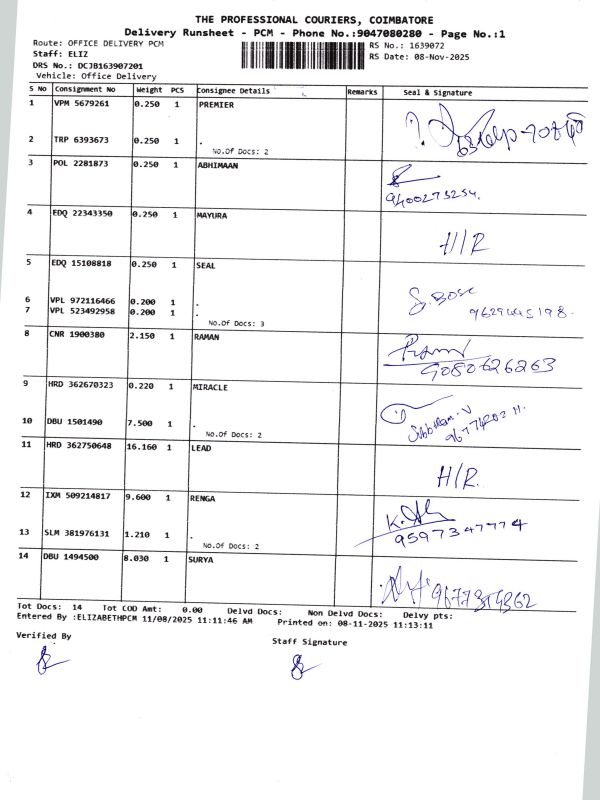 THE PROFESSIONAL COURIERS, COIMBATORE
Delivery Runsheet - PCM - Phone No.:9047080280 - Page No.:1
Route: OFFICE DELIVERY PCM
RS No.: 1639072
Staff: ELIZ
RS Date: 08-Nov-2025
DRS No.: DCJB163907201
Vehicle: Office Delivery
S No Consignment No Weight PCS Consignee Details Remarks Seal & Signature
1 VPM 5679261 0.250 1 PREMIER
2 TRP 6393673 0.250 1 .
No.Of Docs: 2
3 POL 2281873 0.250 1 ABHIMAAN
9400273254.
4 EDQ 22343350 0.250 1 MAYURA
H/R
5 EDQ 15108818 0.250 1 SEAL
S. Bose
6 VPL 972116466 0.200 1 .
9629445198.
7 VPL 523492958 0.200 1 .
No.Of Docs: 3
8 CNR 1900380 2.150 1 RAMAN
9080626263
9 HRD 362670323 0.220 1 MIRACLE
10 DBU 1501490 7.500 1 .
No.Of Docs: 2
11 HRD 362750648 16.160 1 LEAD
H/R.
12 IXM 509214817 9.600 1 RENGA
13 SLM 381976131 1.210 1 .
9597347774
No.Of Docs: 2
14 DBU 1494500 8.030 1 SURYA
Tot Docs: 14 Tot COD Amt: 0.00 Delvd Docs: Non Delvd Docs: Delvy pts:
Entered By :ELIZABETHPCM 11/08/2025 11:11:46 AM Printed on: 08-11-2025 11:13:11
Verified By
Staff Signature